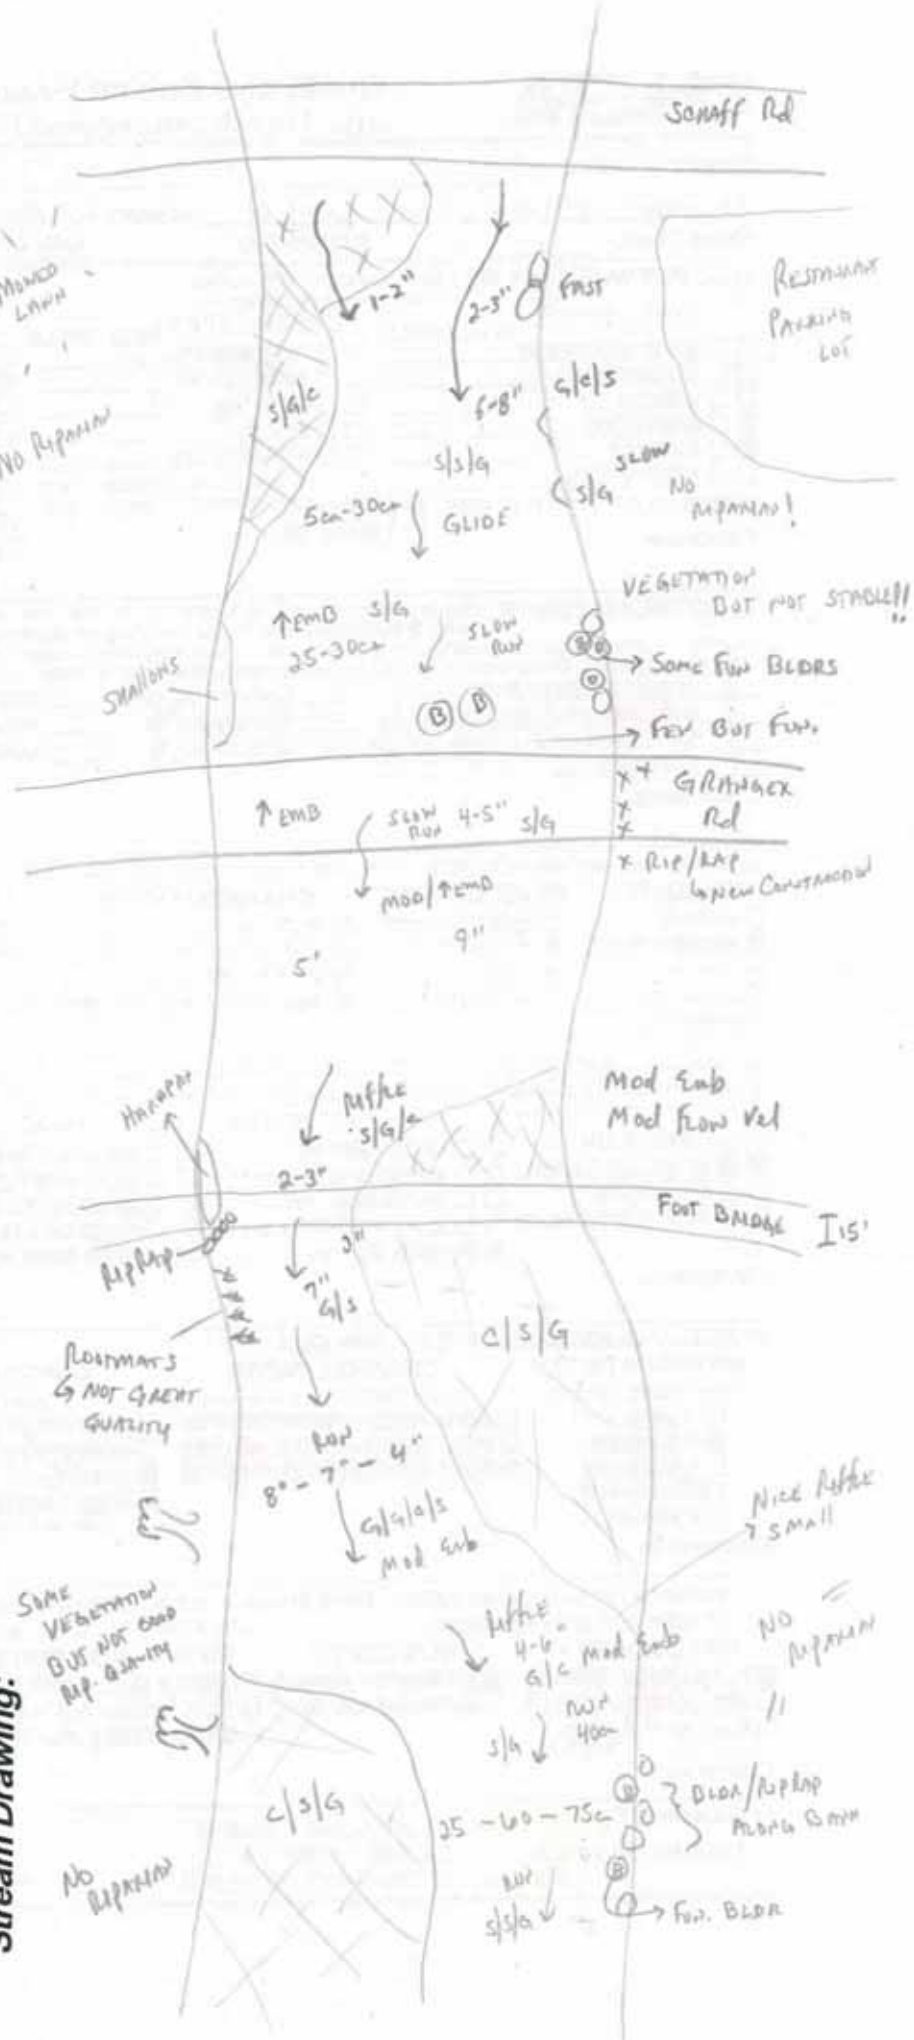 Schaaf Rd
MOWED
LAWN
1-2"
2-3"
FAST
RESTAURANT
PARKING
LOT
S/G/C
6-8"
G/C/S
S/S/G
SLOW
NO RIPARIAN
5cm-30cm
GLIDE
S/G
NO
RIPARIAN!
VEGETATION
BUT NOT STABLE!!
↑EMB S/G
25-30cm
SLOW
RUN
SHALLOWS
SOME FUN BLDRS
B B
FEW BUT FUN.
GRANGER
Rd
↑EMB
SLOW
RUN
4-5" S/G
RIP/RAP
↳ NEW CONSTRUCTION
MOD/↑EMB
9"
5'
Mod Emb
Mod Flow Vel
RIFFLE
S/G/C
2-3"
FOOT BRIDGE
I 15'
RIPRAP
3"
7"
G/S
C/S/G
ROOTMATS
↳ NOT GREAT
QUALITY
RUN
8" - 7" - 4"
Mod Emb
NICE RIFFLE
SMALL
SOME
VEGETATION
BUT NOT GOOD
RIP. QUALITY
RIFFLE
4-6"
G/C
Mod Emb
NO
RIPARIAN
RUN
40cm
S/G
C/S/G
25-60-75c
BLDR/RIPRAP
ALONG BANK
NO
RIPARIAN
RUN
S/S/G
B
FUN. BLDR
Stream Drawing: